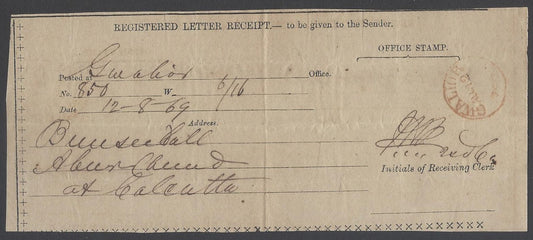 REGISTERED LETTER RECEIPT.— to be given to the Sender.
OFFICE STAMP.
Posted at Gwalior Office.
No. 850 W 6/16
Date 12-8-69
GWALIOR
Address.
Bunseelall
Abeerchund
at Calcutta
Initials of Receiving Clerk